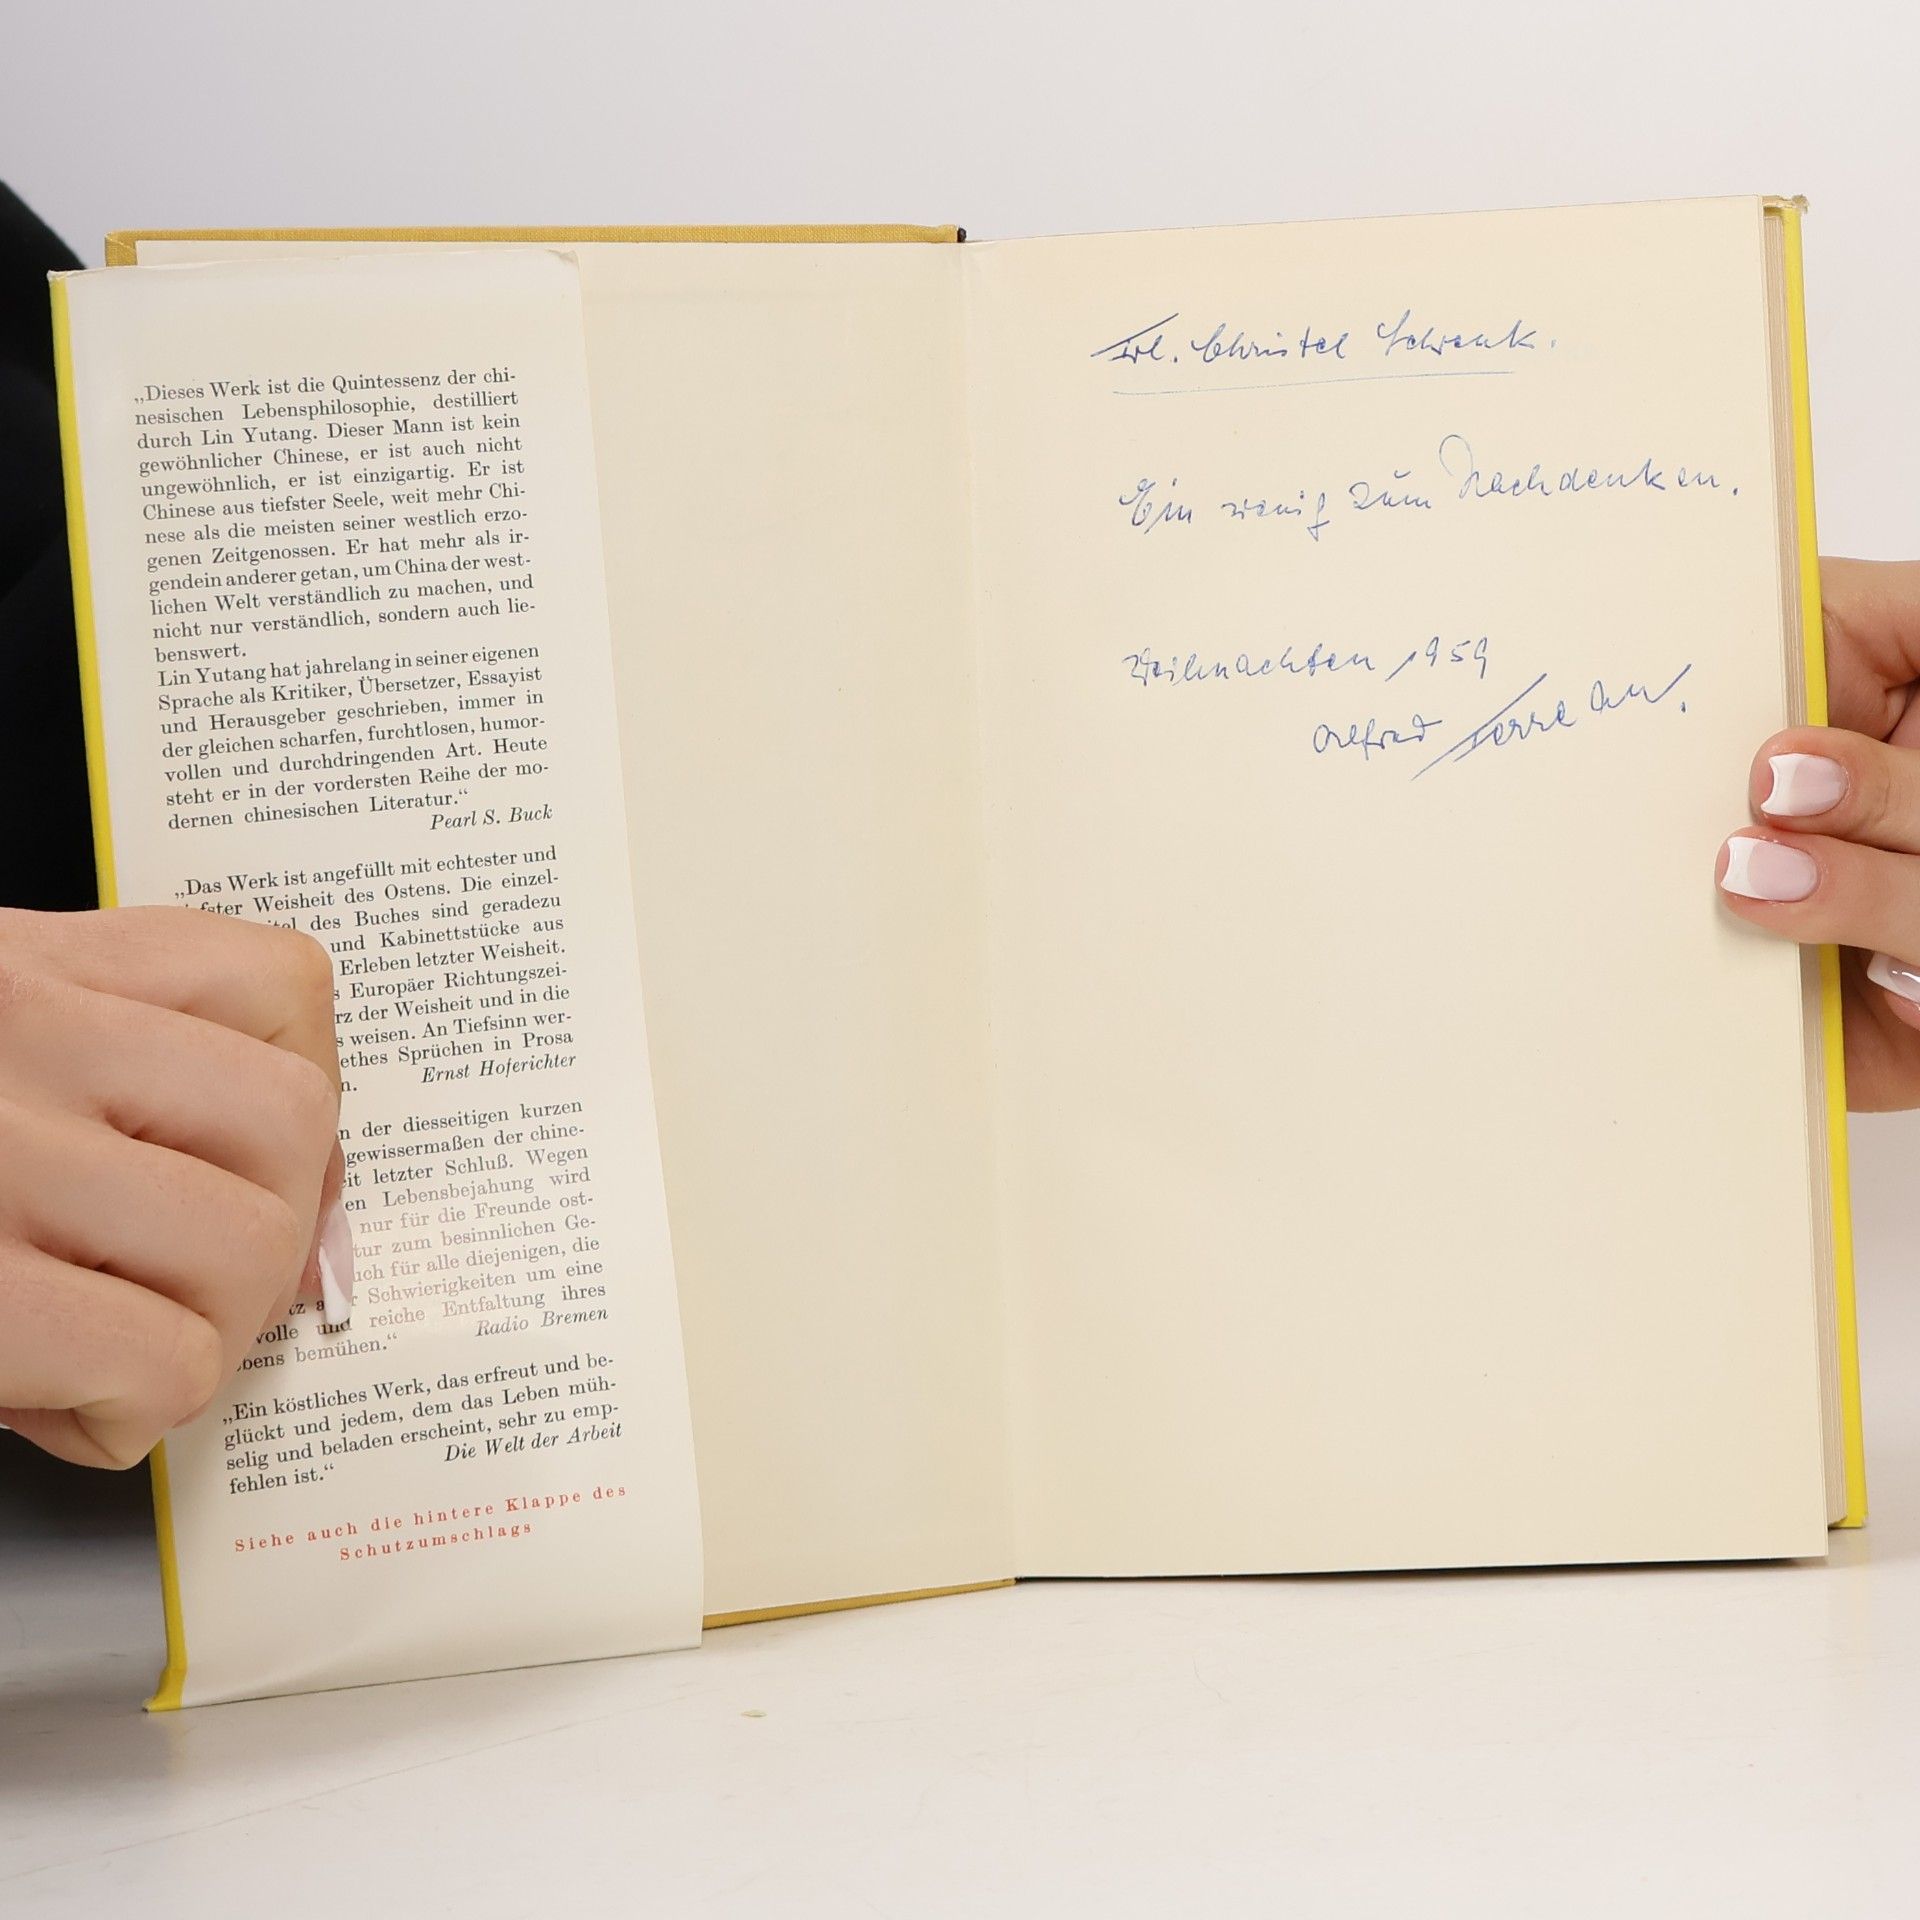 „Dieses Werk ist die Quintessenz der chi-
nesischen Lebensphilosophie, destilliert
durch Lin Yutang. Dieser Mann ist kein
gewöhnlicher Chinese, er ist auch nicht
ungewöhnlich, er ist einzigartig. Er ist
Chinese aus tiefster Seele, weit mehr Chi-
nese als die meisten seiner westlich erzo-
genen Zeitgenossen. Er hat mehr als ir-
gendein anderer getan, um China der west-
lichen Welt verständlich zu machen, und
nicht nur verständlich, sondern auch lie-
benswert.
Lin Yutang hat jahrelang in seiner eigenen
Sprache als Kritiker, Übersetzer, Essayist
und Herausgeber geschrieben, immer in
der gleichen scharfen, furchtlosen, humor-
vollen und durchdringenden Art. Heute
steht er in der vordersten Reihe der mo-
dernen chinesischen Literatur.“
Pearl S. Buck
„Das Werk ist angefüllt mit echtester und
Weisheit des Ostens. Die einzel-
des Buches sind geradezu
und Kabinettstücke aus
Erleben letzter Weisheit.
Europäer Richtungszei-
der Weisheit und in die
weisen. An Tiefsinn wer-
Sprüchen in Prosa
Ernst Hoferichter
der diesseitigen kurzen
gewissermaßen der chine-
letzter Schluß. Wegen
Lebensbejahung wird
nur für die Freunde ost-
zum besinnlichen Ge-
für alle diejenigen, die
Schwierigkeiten um eine
volle und reiche Entfaltung ihres
bemühen.“ Radio Bremen
„Ein köstliches Werk, das erfreut und be-
glückt und jedem, dem das Leben müh-
selig und beladen erscheint, sehr zu emp-
fehlen ist.“ Die Welt der Arbeit
Siehe auch die hintere Klappe des
Schutzumschlags
Frl. Christel Schrenk.
Ein wenig zum Nachdenken.
Weihnachten 1959
Alfred